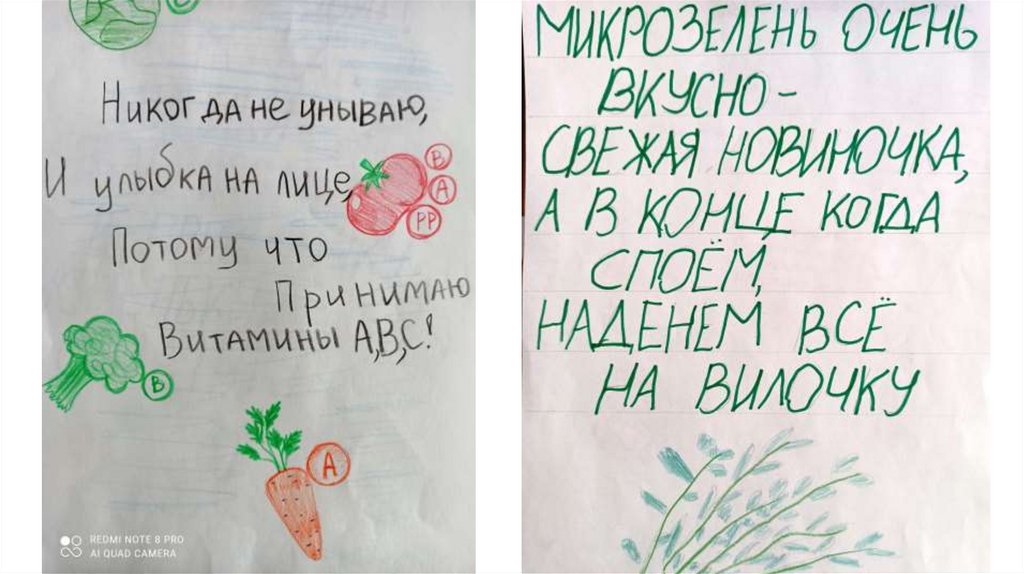 Никогда не унываю,
И улыбка на лице,
Потому что
Принимаю
Витамины А,В,С!
В
А
РР
В
А
REDMI NOTE 8 PRO
AI QUAD CAMERA
МИКРОЗЕЛЕНЬ ОЧЕНЬ
ВКУСНО-
СВЕЖАЯ НОВИНОЧКА,
А В КОНЦЕ КОГДА
СПОЁМ,
НАДЕНЕМ ВСЁ
НА ВИЛОЧКУ